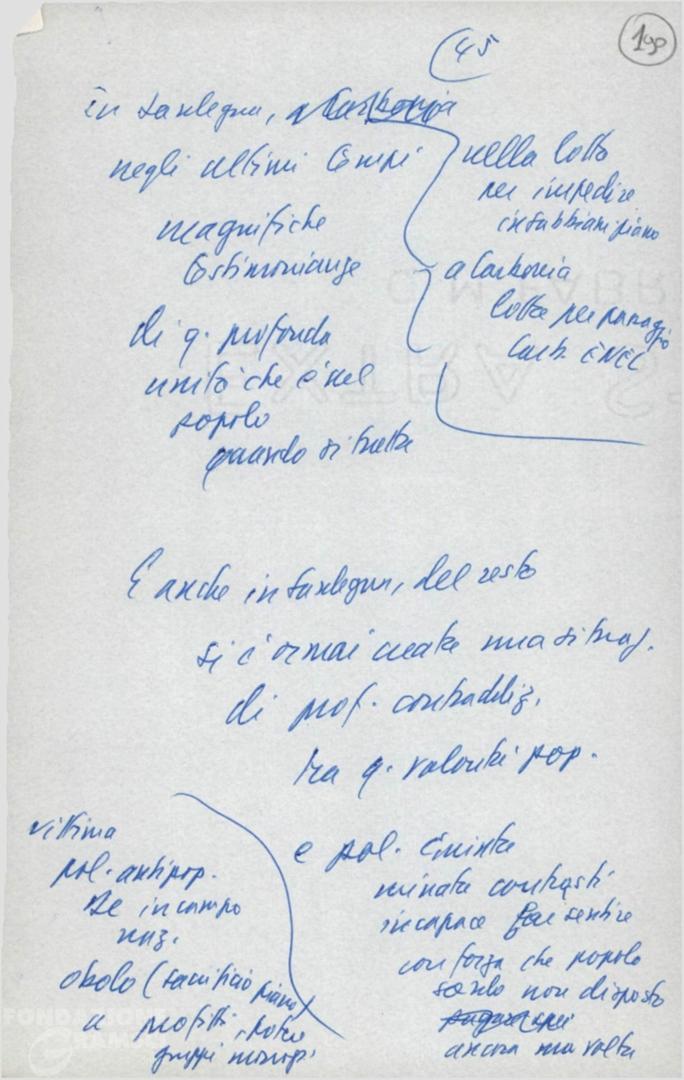 45
198
in Sardegna, a Carbonia
negli ultimi tempi
magnifiche
testimonianze
di q. profonda
unità che è nel
popolo
quando si tratta
nella lotta
per impedire
insabbiam piano
a Carbonia
lotta per passaggio
Carb. ENEL
E anche in Sardegna, del resto
si è ormai creata una situaz.
di prof. contraddiz.
tra q. volontà pop.
vittima
pol. antipop.
De in campo
naz.
obolo (sacrificio piano)
a profitti
gruppi monop.
e pol. Giunta
minata contrasti
incapace far sentire
con forza che popolo
sardo non disposto
ancora una volta
FONDAZIONE
GRAMSCI